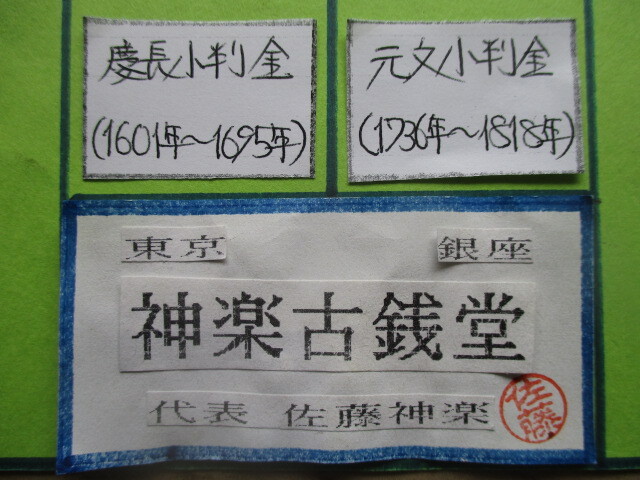 慶長小判金
(1601年～1695年)
元文小判金
(1736年～1818年)
東京 銀座
神楽古銭堂
代表 佐藤神楽
佐藤